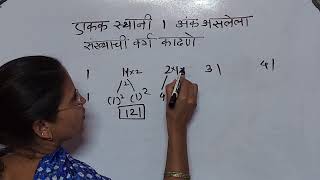 एकक स्थानी 1 अंक असलेला
संख्यांची वर्ग काढणे
1 11×2 2×1 31 41
(1)² (1)²
121